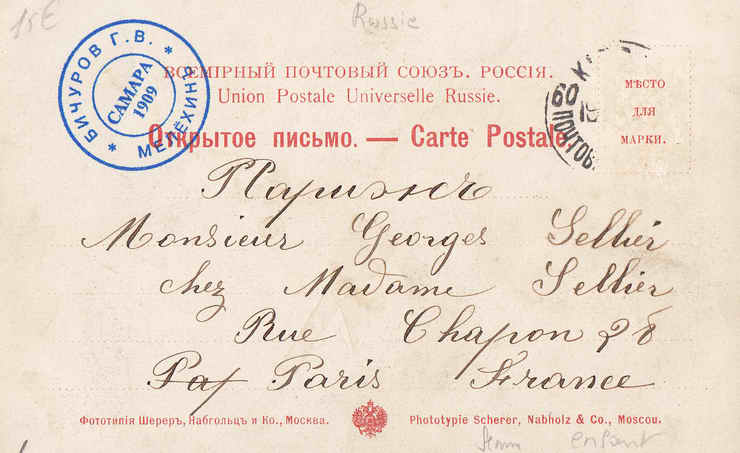 15€
Russie
БИЧУРОВ Г.В. * МЕЛЁХИНЯ *
САМАРА
1909
ВСЕМІРНЫЙ ПОЧТОВЫЙ СОЮЗЪ. РОССІЯ.
Union Postale Universelle Russie.
Открытое письмо. — Carte Postale.
60
ПОЧТОВ.
МѢСТО
ДЛЯ
МАРКИ.
Парижъ
Monsieur Georges Sellier
chez Madame Sellier
Rue Chapon 28
Paris France
Фототипія Шереръ, Набгольцъ и Ко., Москва.
Phototypie Scherer, Nabholz & Co., Moscou.
enfant